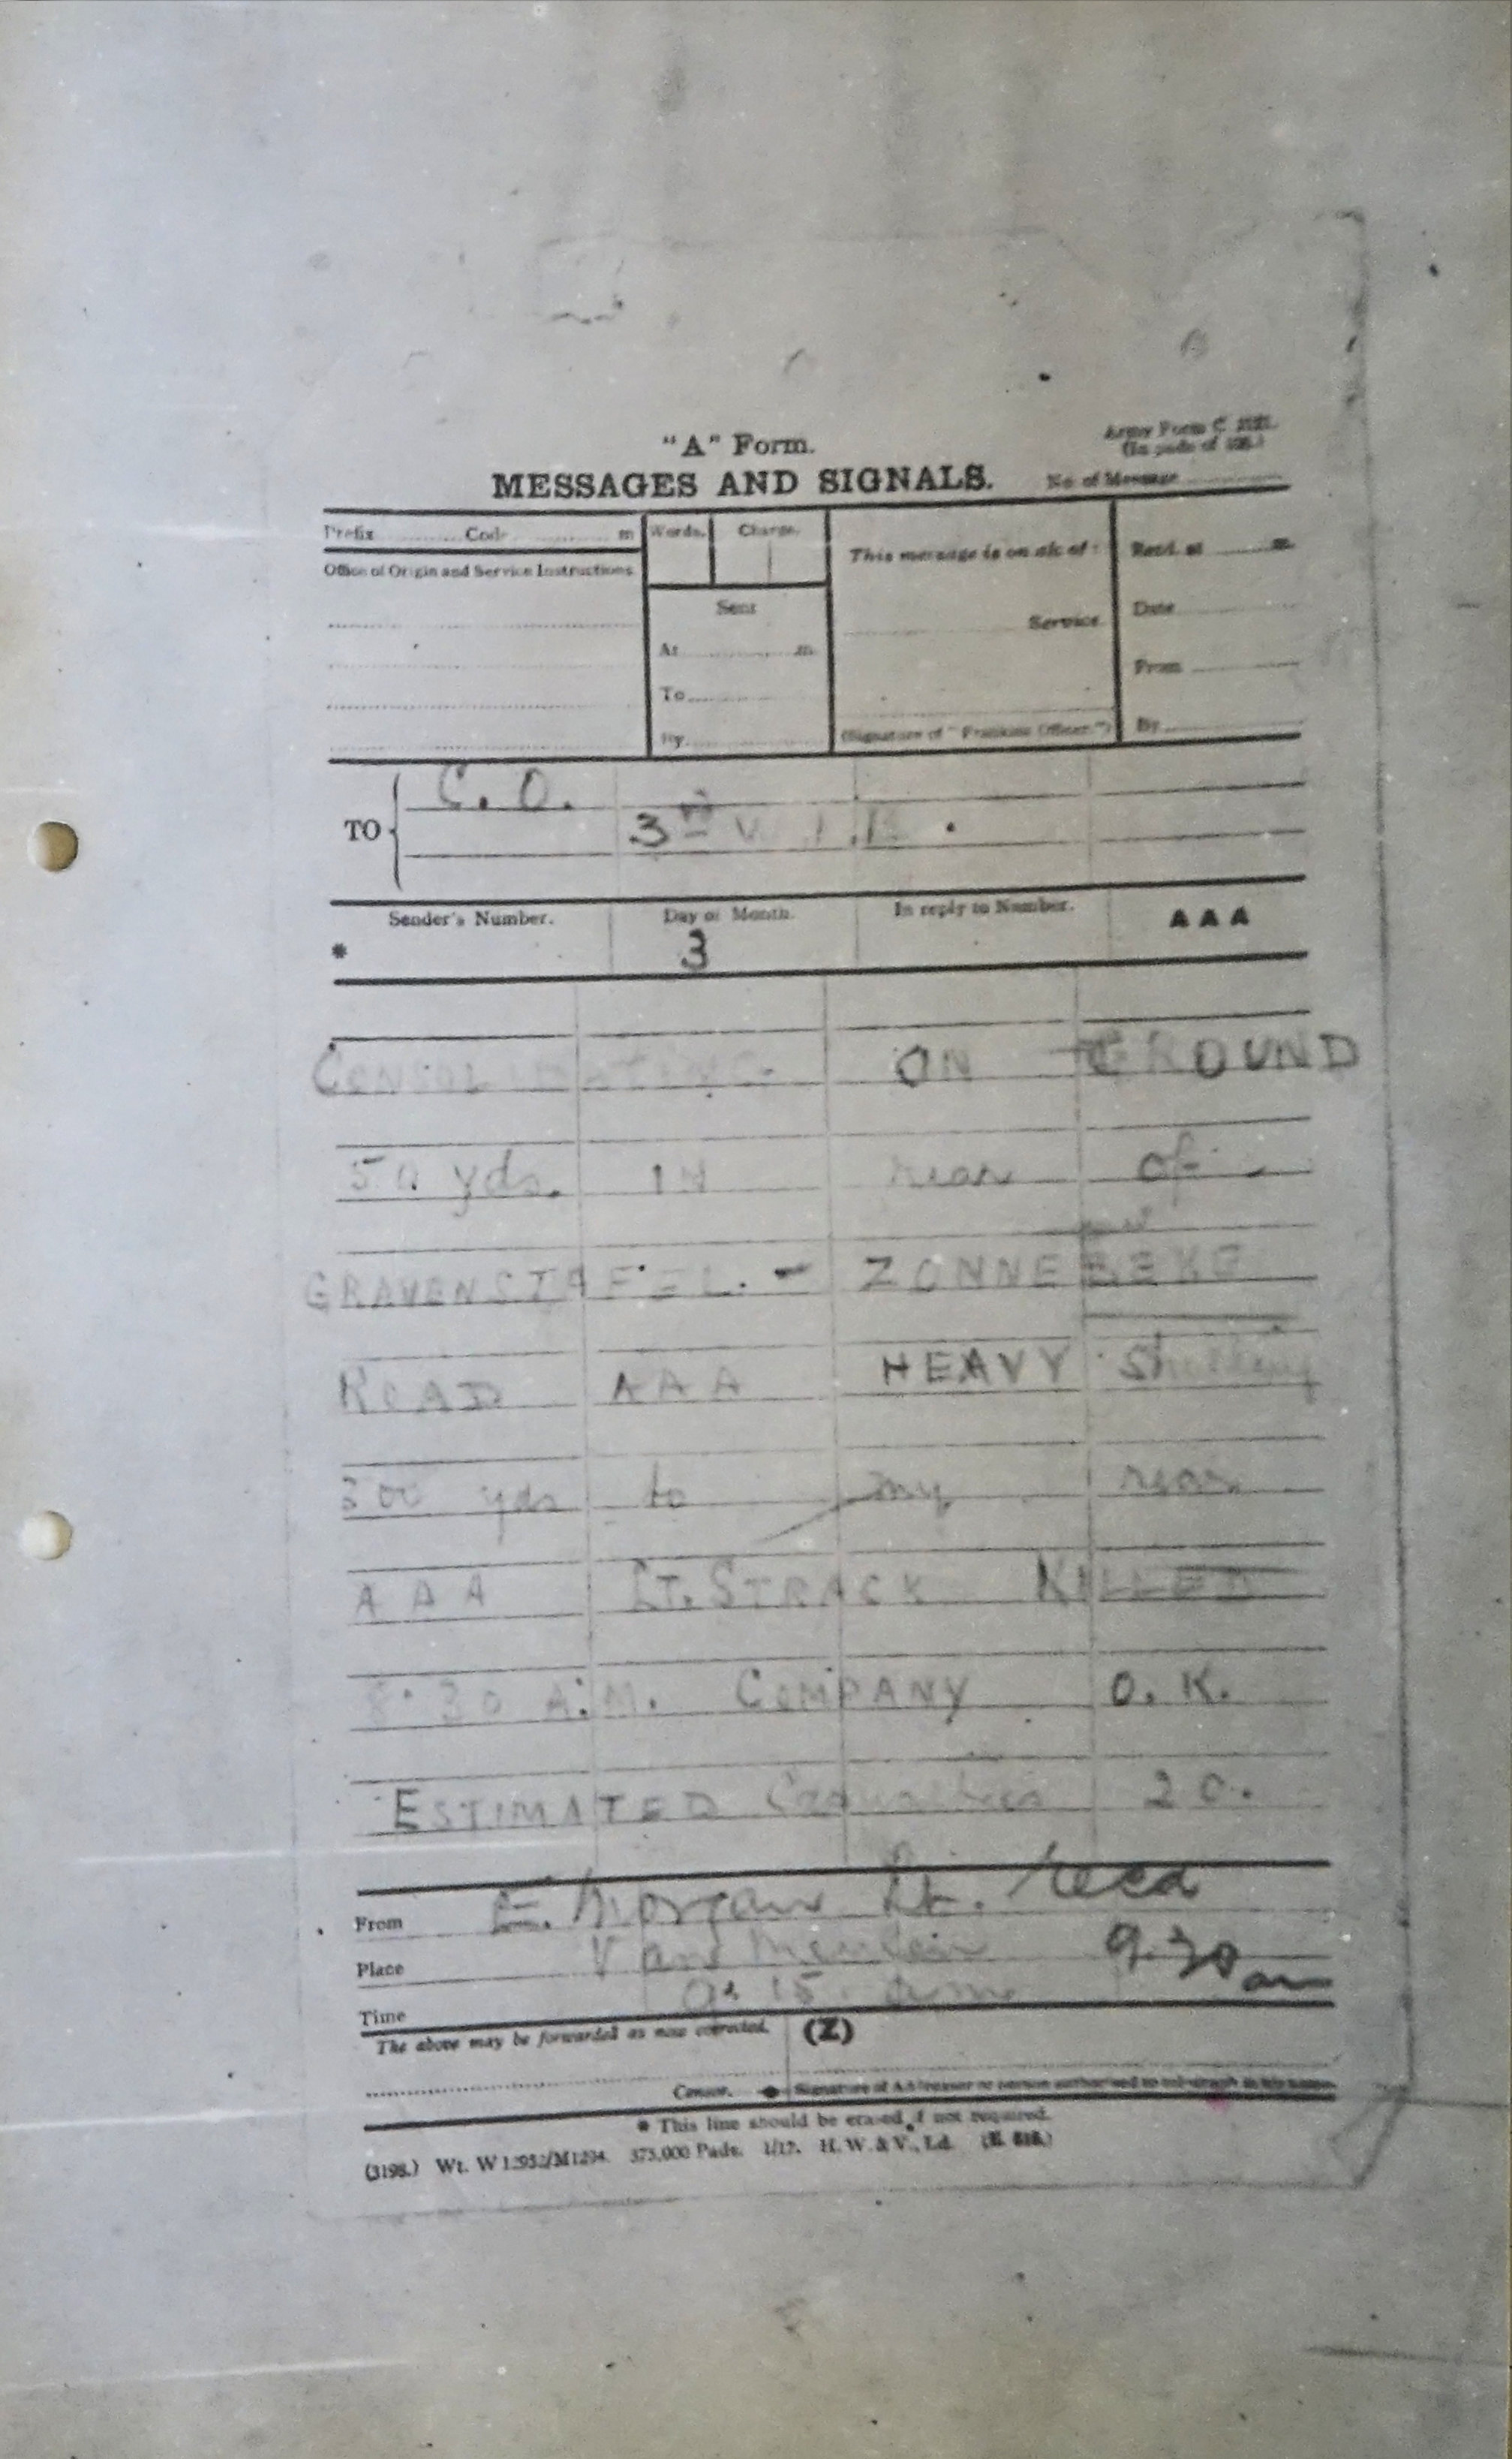 "A" Form.
Army Form C. 2121.
MESSAGES AND SIGNALS.
No. of Message
Prefix Code m
Words.
Charge.
This message is on a/c of:
Recd. at m.
Office of Origin and Service Instructions
Sent
Service
Date
At m.
From
To
By
(Signature of "Franking Officer.")
By
C. O.
TO
3rd
Sender's Number.
Day of Month.
In reply to Number.
AAA
*
3
CONSOLIDATING ON GROUND
50 yds. IN rear of
GRAVENSTAFEL. - ZONNEBEKE
ROAD AAA HEAVY Shelling
300 yds to my rear
AAA LT. STRACK KILLED
8.30 A.M. COMPANY O.K.
ESTIMATED Casualties 20.
From E. Morgan Lt. Recd
Place 9.30 am
Time 9.15
The above may be forwarded as now corrected.
(Z)
Censor.
Signature of Addressor or person authorised to telegraph in his name.
* This line should be erased if not required.
(3198.) Wt. W12952/M1294. 375,000 Pads. 1/17. H. W. & V., Ld. (E. 818.)